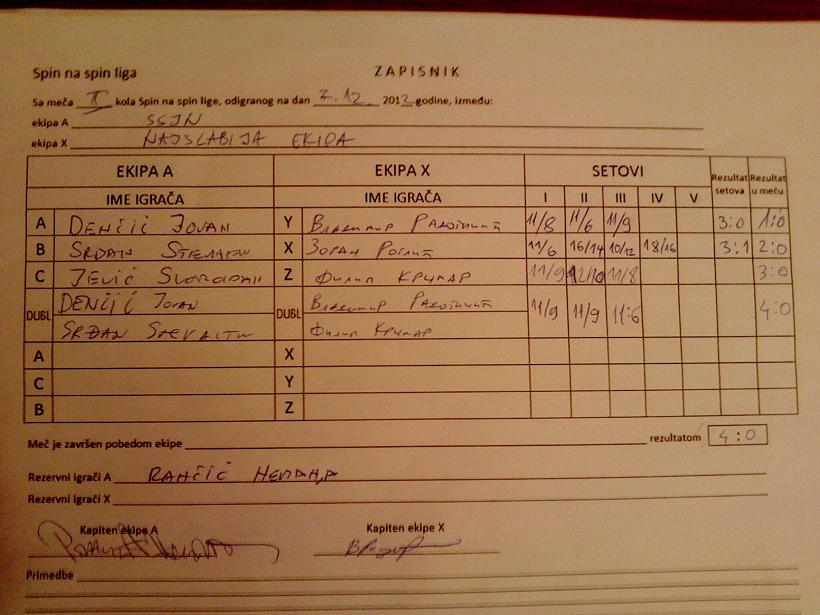 Spin na spin liga ZAPISNIK
Sa meča II kola Spin na spin lige, odigranog na dan 7.12. 2012 godine, između:
ekipa A SSJN
ekipa X NAJSLABIJA EKIPA
EKIPA A EKIPA X SETOVI Rezultat setova Rezultat u meču
IME IGRAČA IME IGRAČA I II III IV V
A DENČIĆ JOVAN Y Владимир 11/8 11/6 11/9 3:0 1:0
B SRĐAN X Зоран 11/6 16/14 10/12 18/16 3:1 2:0
C JEVIĆ SLOBODAN Z Филип Крчмар 11/9 12/10 11/8 3:0
DUBL DENČIĆ JOVAN DUBL Владимир 11/9 11/9 11:6 4:0
SRĐAN Филип Крчмар
A X
C Y
B Z
Meč je završen pobedom ekipe rezultatom 4:0
Rezervni igrači A RANČIĆ
Rezervni igrači X
Kapiten ekipe A Kapiten ekipe X
Primedbe